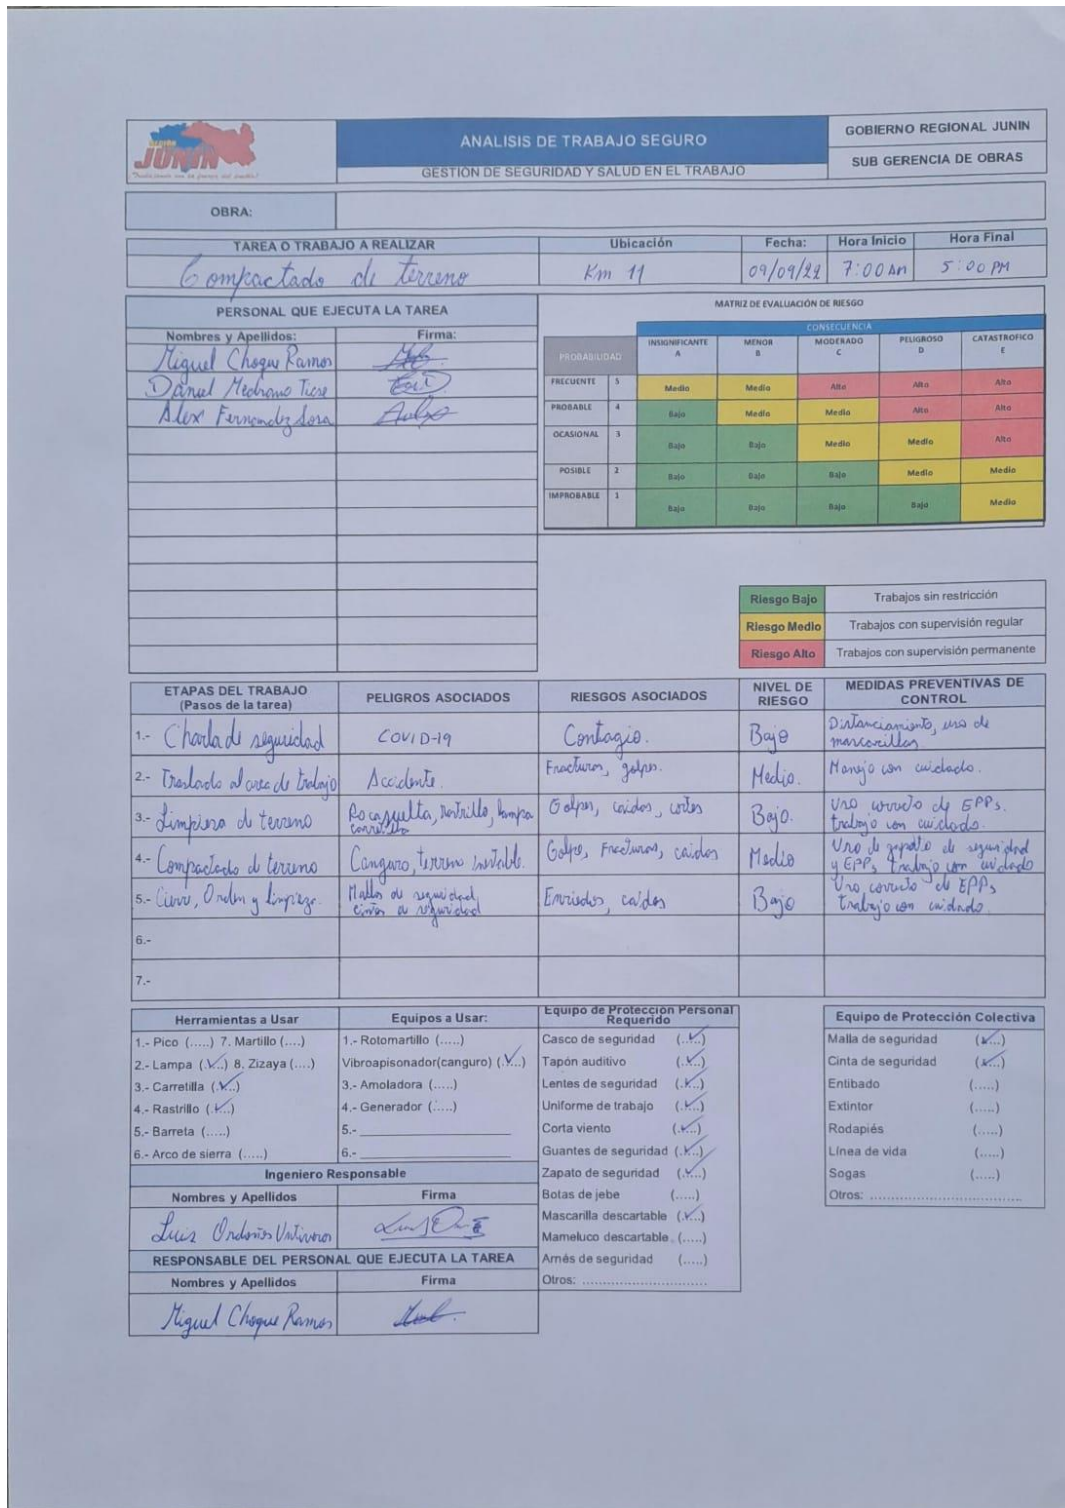 JUNIN
ANALISIS DE TRABAJO SEGURO
GESTIÓN DE SEGURIDAD Y SALUD EN EL TRABAJO
GOBIERNO REGIONAL JUNIN
SUB GERENCIA DE OBRAS
OBRA:
TAREA O TRABAJO A REALIZAR Ubicación Fecha: Hora Inicio Hora Final
Compactado de terreno Km 11 09/09/22 7:00 AM 5:00 PM
PERSONAL QUE EJECUTA LA TAREA
Nombres y Apellidos: Firma:
Miguel Choque Ramos
Daniel Medrano Ticse
Alex Fernandez Sora
MATRIZ DE EVALUACIÓN DE RIESGO
CONSECUENCIA
PROBABILIDAD INSIGNIFICANTE A MENOR B MODERADO C PELIGROSO D CATASTROFICO E
FRECUENTE 5 Medio Medio Alto Alto Alto
PROBABLE 4 Bajo Medio Medio Alto Alto
OCASIONAL 3 Bajo Bajo Medio Medio Alto
POSIBLE 2 Bajo Bajo Bajo Medio Medio
IMPROBABLE 1 Bajo Bajo Bajo Bajo Medio
Riesgo Bajo Trabajos sin restricción
Riesgo Medio Trabajos con supervisión regular
Riesgo Alto Trabajos con supervisión permanente
ETAPAS DEL TRABAJO (Pasos de la tarea) PELIGROS ASOCIADOS RIESGOS ASOCIADOS NIVEL DE RIESGO MEDIDAS PREVENTIVAS DE CONTROL
1.- Charla de seguridad COVID-19 Contagio. Bajo Distanciamiento, uso de mascarillas
2.- Traslado al area de trabajo Accidente. Fracturas, golpes. Medio. Manejo con cuidado.
3.- Limpieza de terreno Roca suelta, rastrillo, lampa carretilla Golpes, caidas, cortes Bajo. Uso correcto de EPPs. trabajo con cuidado.
4.- Compactado de terreno Canguro, terreno inestable. Golpes, Fracturas, caidas Medio Uso de zapato de seguridad y EPPs, trabajo con cuidado
5.- Cierre, Orden y limpieza. Mallas de seguridad, cintas de seguridad Enriedos, caidas Bajo Uso correcto de EPPs trabajo con cuidado.
6.-
7.-
Herramientas a Usar
1.- Pico (.....) 7. Martillo (....)
2.- Lampa (.✓..) 8. Zizaya (....)
3.- Carretilla (.✓..)
4.- Rastrillo (.✓..)
5.- Barreta (.....)
6.- Arco de sierra (.....)
Equipos a Usar:
1.- Rotomartillo (.....)
Vibroapisonador(canguro) (.✓..)
3.- Amoladora (.....)
4.- Generador (.....)
5.-
6.-
Equipo de Protección Personal Requerido
Casco de seguridad (.✓..)
Tapón auditivo (.✓..)
Lentes de seguridad (.✓..)
Uniforme de trabajo (.✓..)
Corta viento (.✓..)
Guantes de seguridad (.✓..)
Zapato de seguridad (.✓..)
Botas de jebe (.....)
Mascarilla descartable (.✓..)
Mameluco descartable (.....)
Arnés de seguridad (.....)
Otros: ..............................
Equipo de Protección Colectiva
Malla de seguridad (✓...)
Cinta de seguridad (✓...)
Entibado (.....)
Extintor (.....)
Rodapiés (.....)
Línea de vida (.....)
Sogas (.....)
Otros: ....................................
Ingeniero Responsable
Nombres y Apellidos Firma
Luis Ordoñes Untiveros
RESPONSABLE DEL PERSONAL QUE EJECUTA LA TAREA
Nombres y Apellidos Firma
Miguel Choque Ramos